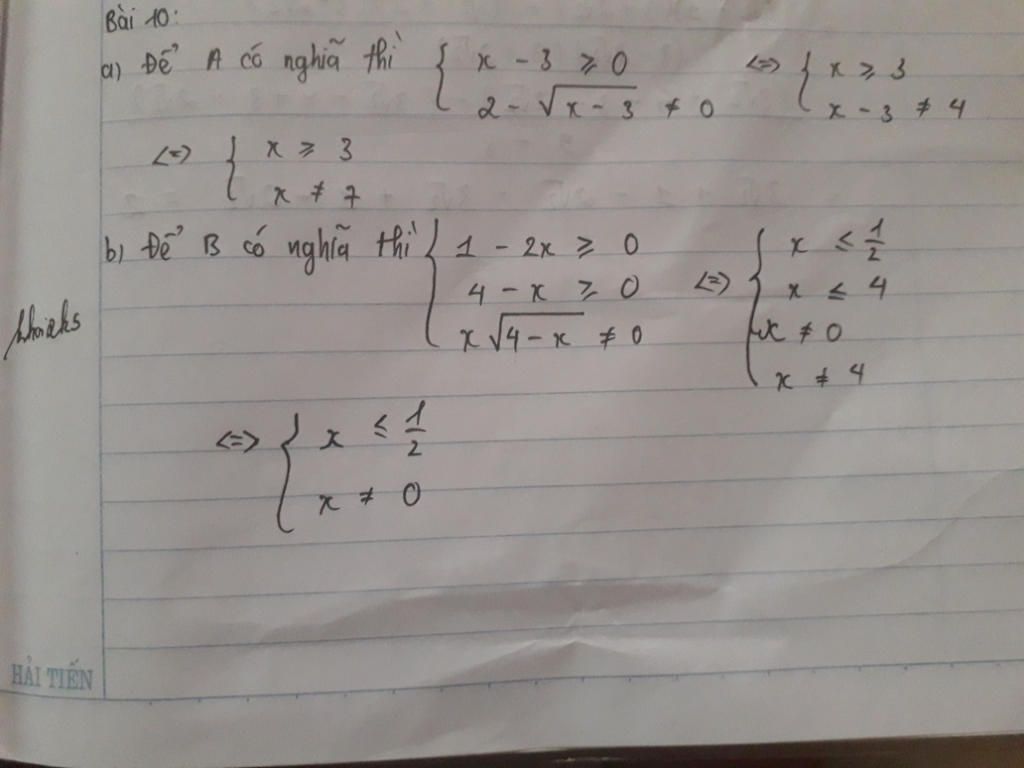 Bài 10:
a) Để A có nghĩã thì { x - 3 ≥ 0 <=> { x ≥ 3
2 - √(x - 3) ≠ 0 x - 3 ≠ 4
<=> { x ≥ 3
x ≠ 7
b) Để B có nghĩã thì { 1 - 2x ≥ 0 <=> { x ≤ 1/2
4 - x ≥ 0 x ≤ 4
x√(4 - x) ≠ 0 x ≠ 0
x ≠ 4
<=> { x ≤ 1/2
x ≠ 0
HẢI TIẾN